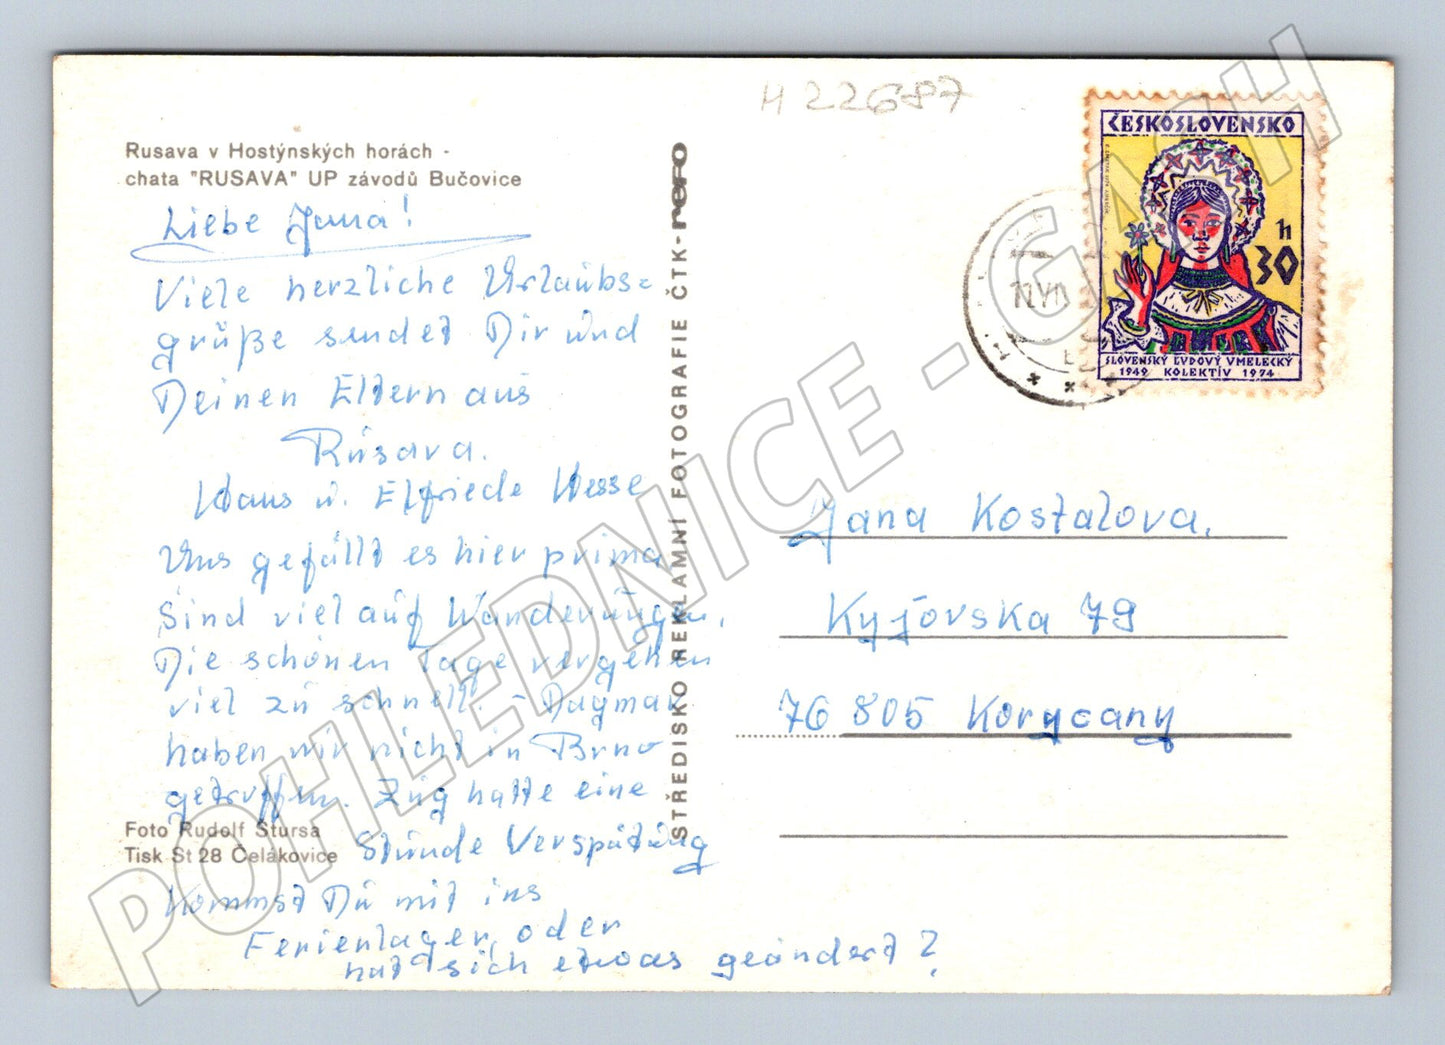 H 22687
Rusava v Hostýnských horách -
chata "RUSAVA" UP závodů Bučovice
Liebe Jana!
Viele herzliche Urlaubs=
grüße sendet Dir und
Deinen Eltern aus
Rusava.
Hans u. Elfriede Hesse
Uns gefällt es hier prima
Sind viel auf Wanderungen.
Die schönen Tage vergehen
viel zu schnell. - Dagmar
haben wir nicht in Brno
getroffen. Zug hatte eine
Stunde Verspätung
Foto Rudolf Štursa
Tisk St 28 Čelákovice
Kommst Du mit ins
Ferienlager, oder
hat sich etwas geändert?
STŘEDISKO REKLAMNÍ FOTOGRAFIE ČTK-REFO
ČESKOSLOVENSKO
30 h
SLOVENSKÝ ĽUDOVÝ UMELECKÝ
1949 KOLEKTÍV 1974
Jana Kostalova.
Kyjovska 79
76 805 Korycany
POHLEDNICE - GASH